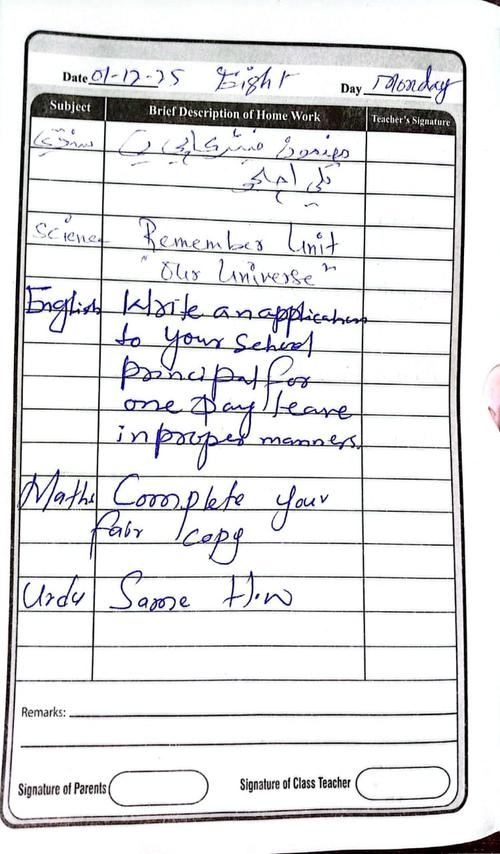 Date 01-12-25 Eight Day Monday
Subject Brief Description of Home Work Teacher's Signature
Science Remember Unit
"Our Universe"
English Write an application
to your School
principal for
one Day leave
in proper manners.
Maths Complete your
fair copy
Urdu Same H.w
Remarks:
Signature of Parents Signature of Class Teacher